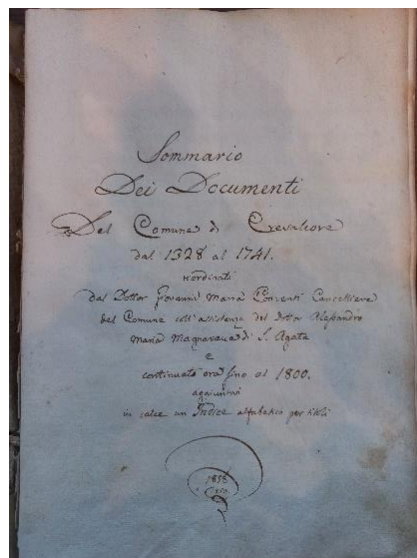 Sommario
Dei Documenti
Del Comune di Crevalcore
dal 1328 al 1741.
riordinati
dal Dottor Giovanni Maria Conventi Cancelliere
del Comune coll'assistenza del Dottor Alessandro
Maria Magnavacca di S. Agata
e
continuato ora fino al 1800.
aggiuntovi
in calce un Indice alfabetico per titoli
1858